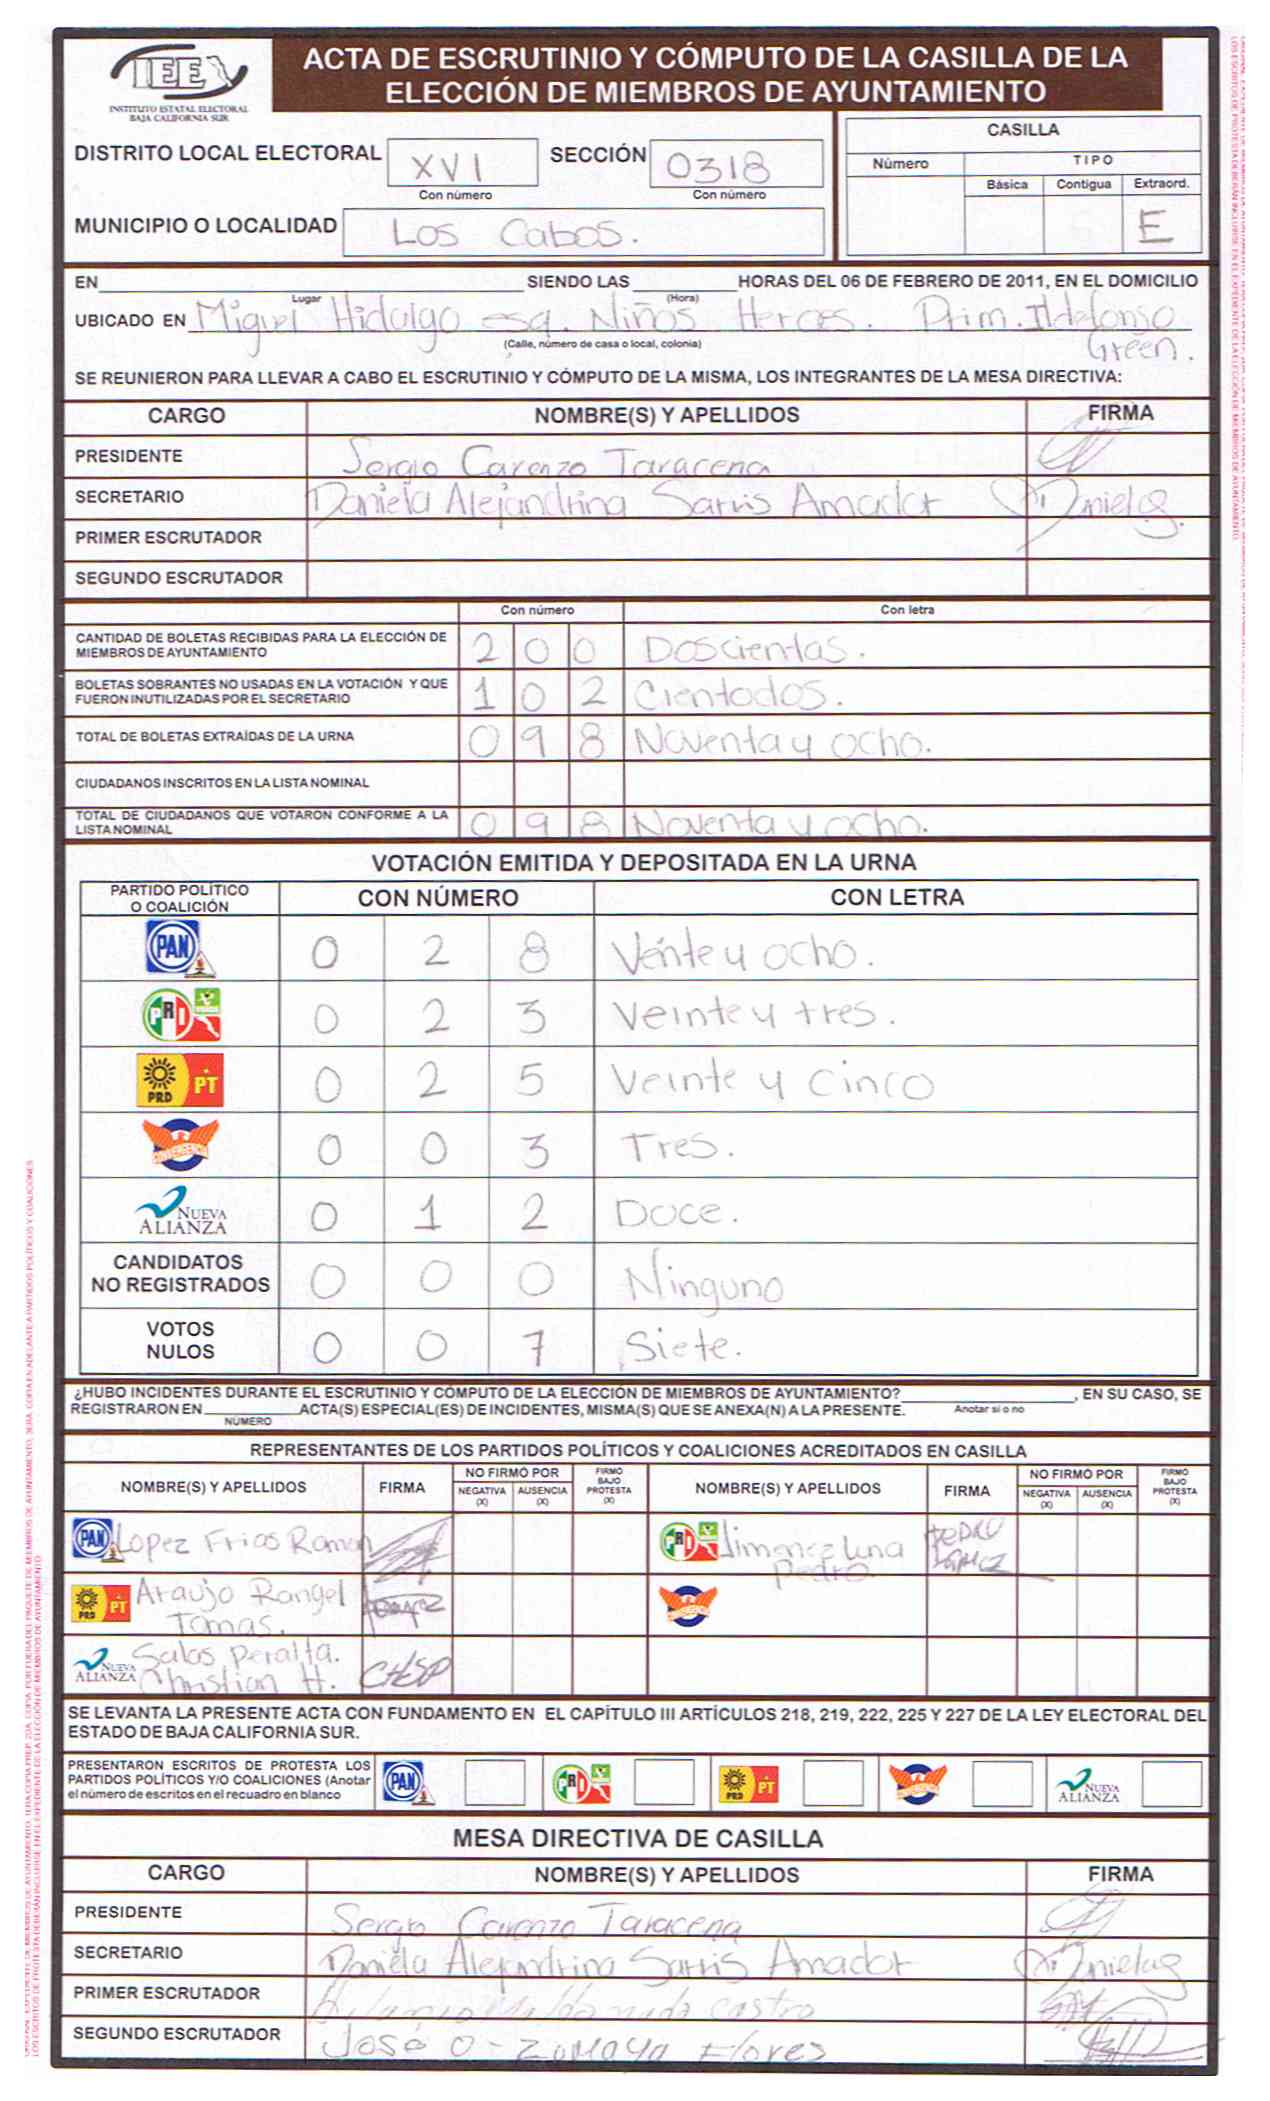 IEE
INSTITUTO ESTATAL ELECTORAL
BAJA CALIFORNIA SUR
ACTA DE ESCRUTINIO Y CÓMPUTO DE LA CASILLA DE LA
ELECCIÓN DE MIEMBROS DE AYUNTAMIENTO
DISTRITO LOCAL ELECTORAL XVI SECCIÓN 0318
Con número Con número
MUNICIPIO O LOCALIDAD Los Cabos.
CASILLA
Número TIPO
Básica Contigua Extraord.
E
EN SIENDO LAS HORAS DEL 06 DE FEBRERO DE 2011, EN EL DOMICILIO
Lugar (Hora)
UBICADO EN Miguel Hidalgo esq. Niños Heroes. Prim. Ildefonso
(Calle, número de casa o local, colonia) Green.
SE REUNIERON PARA LLEVAR A CABO EL ESCRUTINIO Y CÓMPUTO DE LA MISMA, LOS INTEGRANTES DE LA MESA DIRECTIVA:
CARGO NOMBRE(S) Y APELLIDOS FIRMA
PRESIDENTE Sergio Carenzo Taracena
SECRETARIO Daniela Alejandrina Sarvis Amador Daniela
PRIMER ESCRUTADOR
SEGUNDO ESCRUTADOR
Con número Con letra
CANTIDAD DE BOLETAS RECIBIDAS PARA LA ELECCIÓN DE
MIEMBROS DE AYUNTAMIENTO 2 0 0 Doscientas.
BOLETAS SOBRANTES NO USADAS EN LA VOTACIÓN Y QUE
FUERON INUTILIZADAS POR EL SECRETARIO 1 0 2 Cientodos.
TOTAL DE BOLETAS EXTRAÍDAS DE LA URNA 0 9 8 Noventa y ocho.
CIUDADANOS INSCRITOS EN LA LISTA NOMINAL
TOTAL DE CIUDADANOS QUE VOTARON CONFORME A LA
LISTA NOMINAL 0 9 8 Noventa y ocho.
VOTACIÓN EMITIDA Y DEPOSITADA EN LA URNA
PARTIDO POLÍTICO
O COALICIÓN CON NÚMERO CON LETRA
PAN 0 2 8 Vente y ocho.
PRI VERDE 0 2 3 Veinte y tres.
PRD PT 0 2 5 Veinte y Cinco
CONVERGENCIA 0 0 3 Tres.
NUEVA ALIANZA 0 1 2 Doce.
CANDIDATOS
NO REGISTRADOS 0 0 0 Ninguno
VOTOS
NULOS 0 0 7 Siete.
¿HUBO INCIDENTES DURANTE EL ESCRUTINIO Y CÓMPUTO DE LA ELECCIÓN DE MIEMBROS DE AYUNTAMIENTO? , EN SU CASO, SE
REGISTRARON EN ACTA(S) ESPECIAL(ES) DE INCIDENTES, MISMA(S) QUE SE ANEXA(N) A LA PRESENTE. Anotar si o no
NÚMERO
REPRESENTANTES DE LOS PARTIDOS POLÍTICOS Y COALICIONES ACREDITADOS EN CASILLA
NOMBRE(S) Y APELLIDOS FIRMA NO FIRMÓ POR NEGATIVA (X) AUSENCIA (X) FIRMÓ BAJO PROTESTA (X) NOMBRE(S) Y APELLIDOS FIRMA NO FIRMÓ POR NEGATIVA (X) AUSENCIA (X) FIRMÓ BAJO PROTESTA (X)
PAN Lopez Frias Ramon PRI Jimenez Luna Pedro PEDRO
PRD PT Araujo Rangel Tomas. CONVERGENCIA
NUEVA ALIANZA Salas Peralta. Christian H. CHSP
SE LEVANTA LA PRESENTE ACTA CON FUNDAMENTO EN EL CAPÍTULO III ARTÍCULOS 218, 219, 222, 225 Y 227 DE LA LEY ELECTORAL DEL
ESTADO DE BAJA CALIFORNIA SUR.
PRESENTARON ESCRITOS DE PROTESTA LOS
PARTIDOS POLÍTICOS Y/O COALICIONES (Anotar
el número de escritos en el recuadro en blanco
PAN PRI PRD PT CONVERGENCIA NUEVA ALIANZA
MESA DIRECTIVA DE CASILLA
CARGO NOMBRE(S) Y APELLIDOS FIRMA
PRESIDENTE Sergio Carenzo Taracena
SECRETARIO Daniela Alejandrina Sarvis Amador Daniela
PRIMER ESCRUTADOR Maldonado Castro
SEGUNDO ESCRUTADOR José O- Zumaya Flores